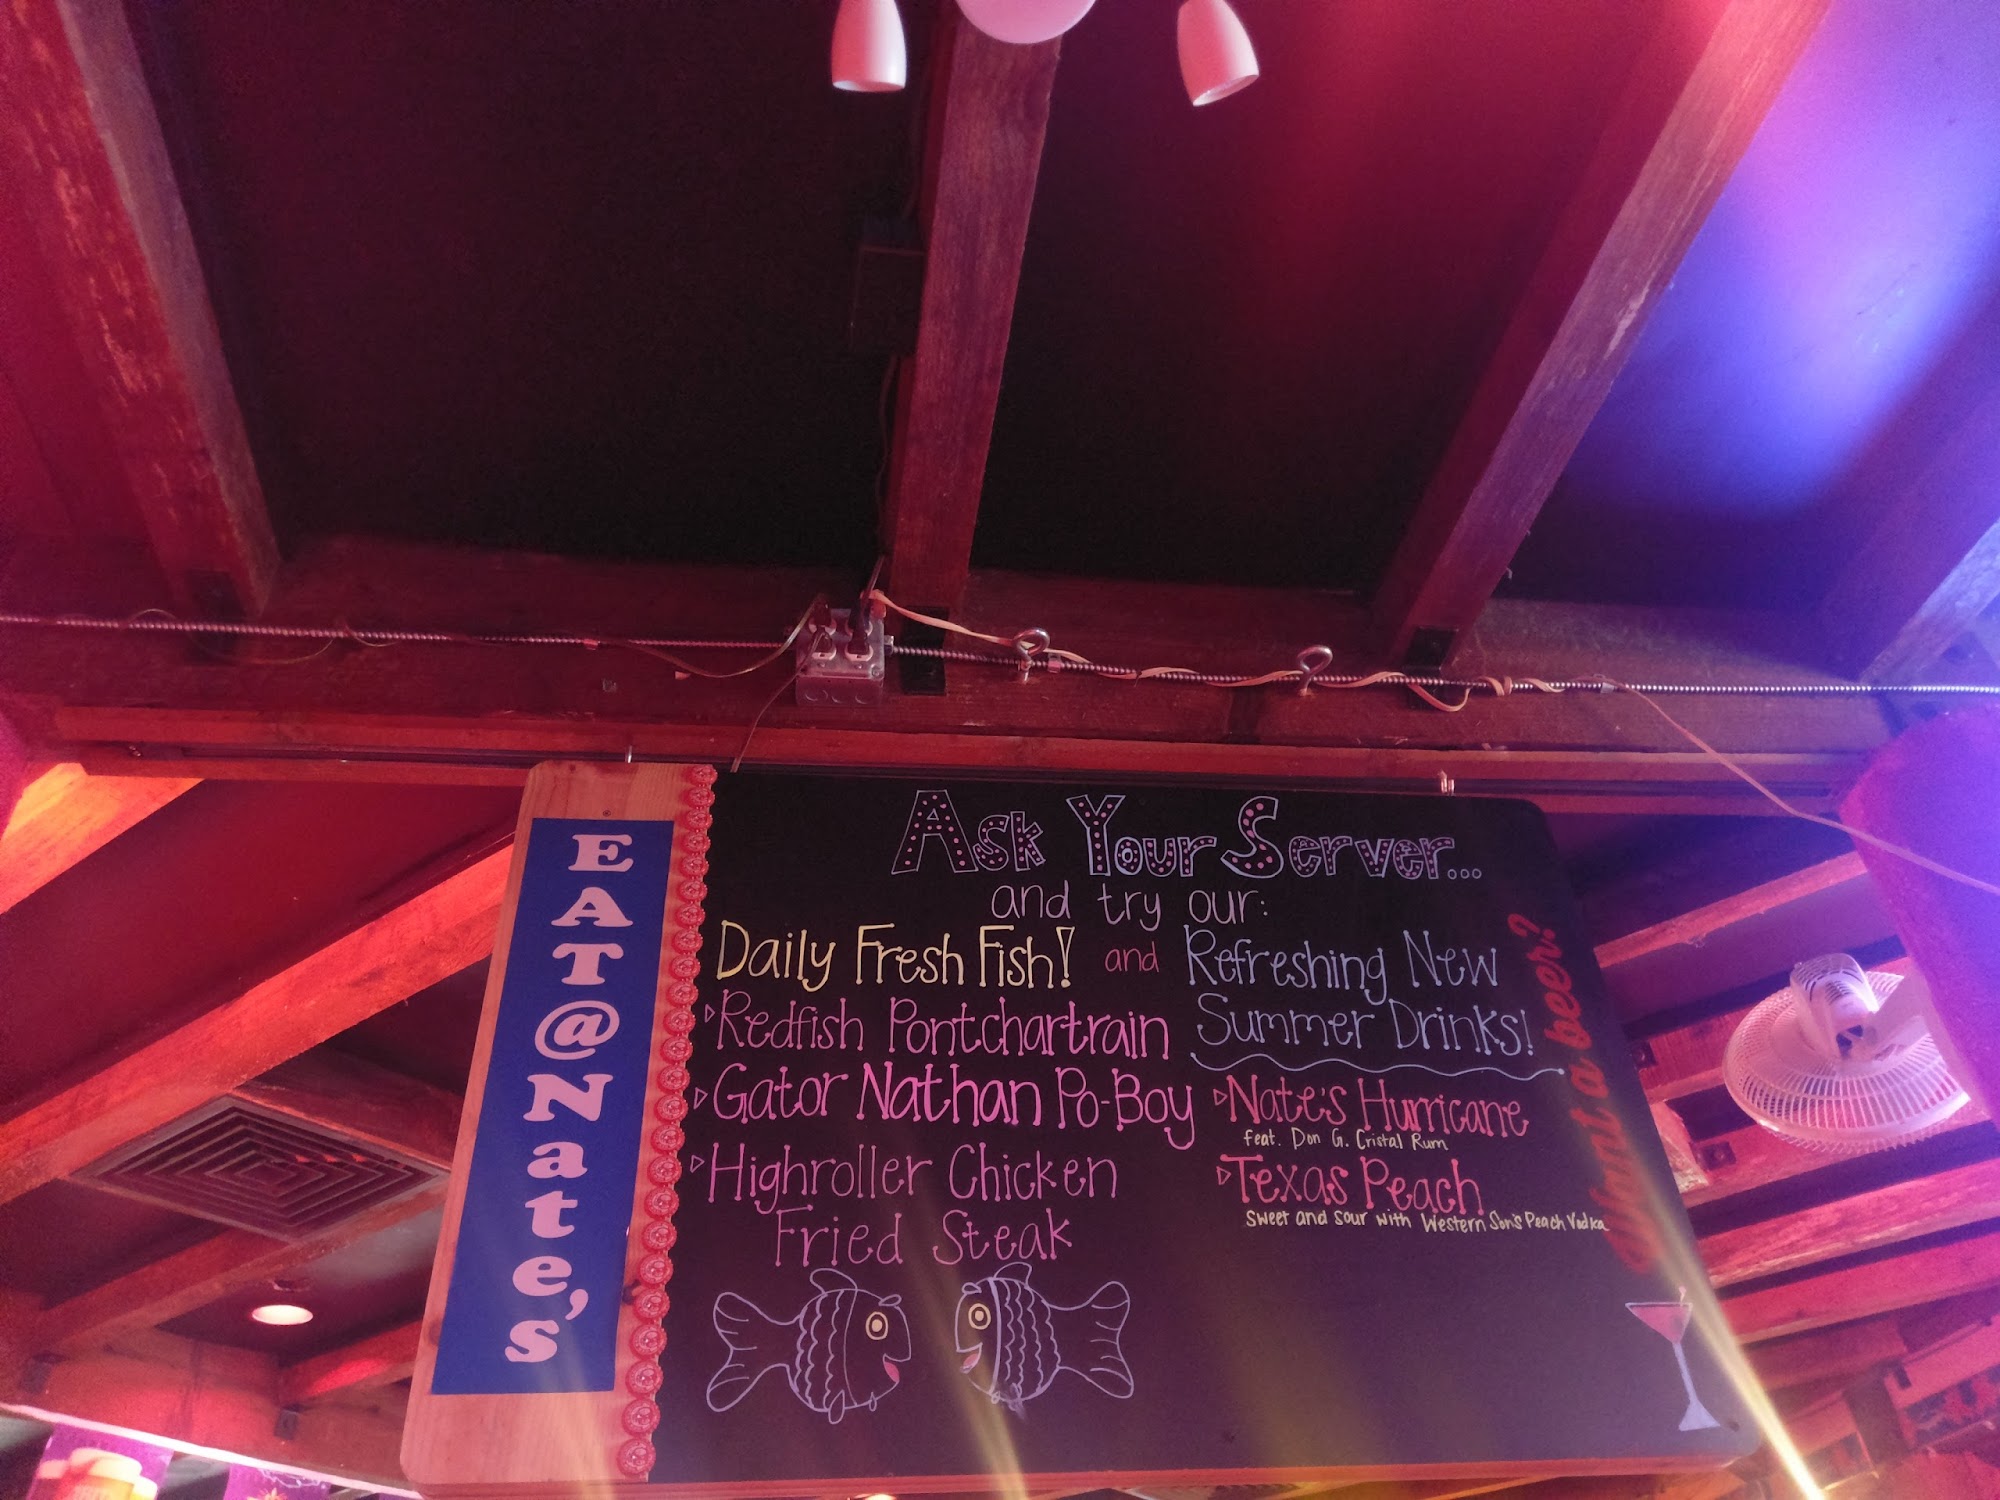 EAT@Nate's
Ask Your Server...
and try our:
Daily Fresh Fish! and
Redfish Pontchartrain
Gator Nathan Po-Boy
Highroller Chicken
Fried Steak
Refreshing New
Summer Drinks!
Nate's Hurricane
feat. Don G. Cristal Rum
Texas Peach
Sweet and Sour with Western Son's Peach Vodka
Want a beer?